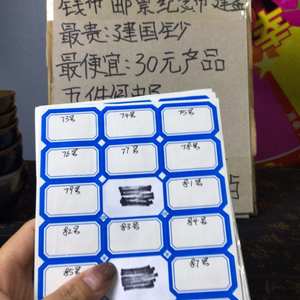 钱币 邮票 纪念币
最贵:建国钞
最便宜:30元产品
五件包邮
73号 74号 75号
76号 77号 78号
79号 81号
82号 83号 84号
85号 87号